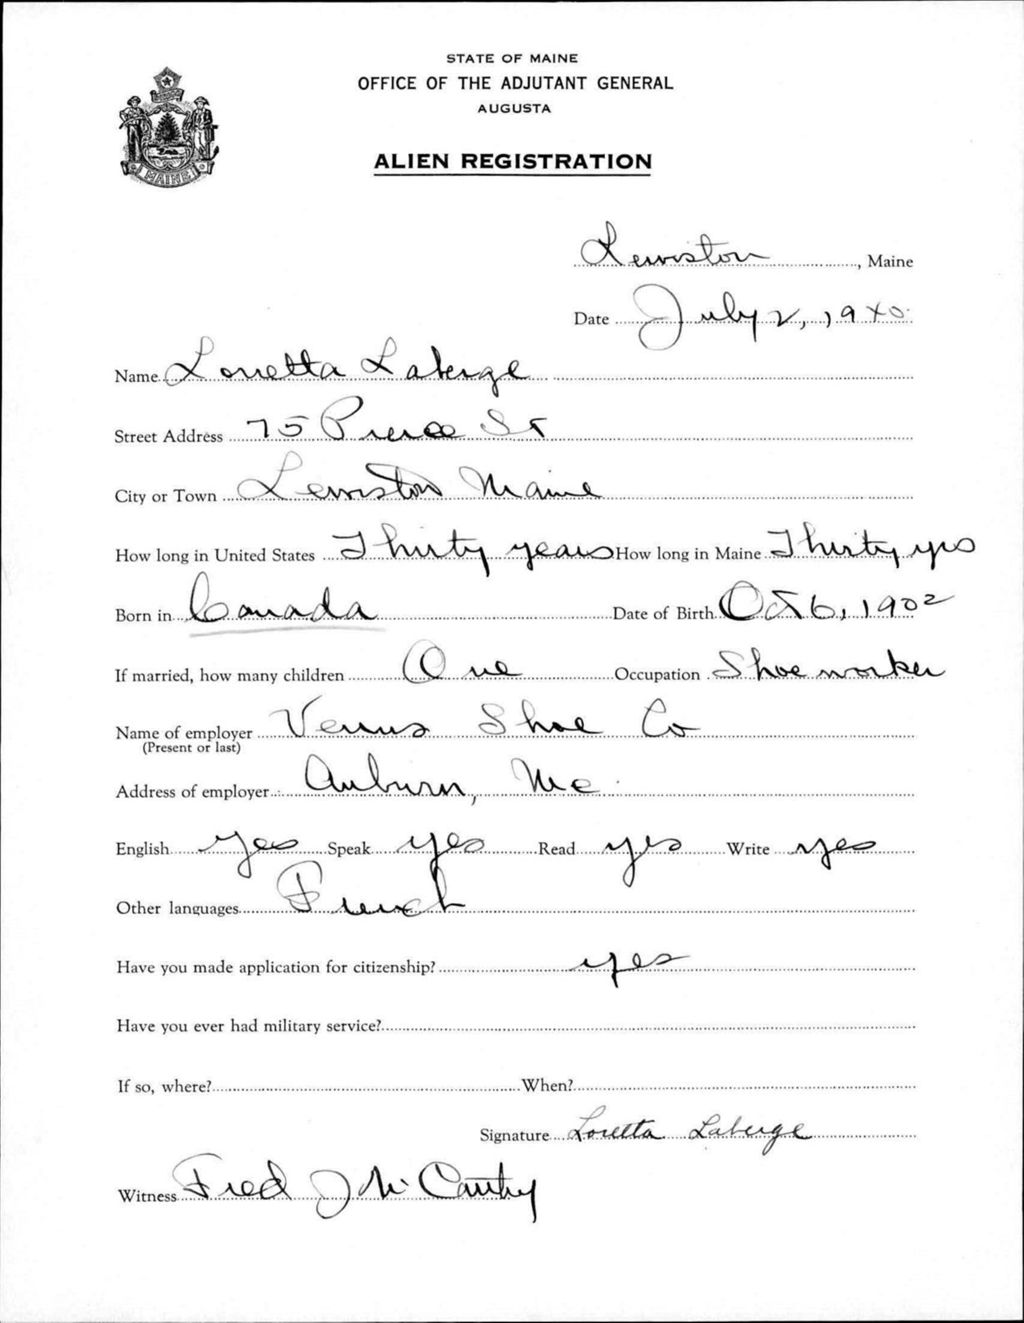 STATE OF MAINE
OFFICE OF THE ADJUTANT GENERAL
AUGUSTA
MAINE
ALIEN REGISTRATION
Lewiston, Maine
Date July 2, 1940
Name Loretta Laberge
Street Address 75 Pierce St
City or Town Lewiston Maine
How long in United States Thirty years How long in Maine Thirty yrs
Born in Canada Date of Birth Oct 6, 1902
If married, how many children One Occupation Shoe worker
Name of employer Venus Shoe Co
(Present or last)
Address of employer Auburn, Me
English yes Speak yes Read yes Write yes
Other languages French
Have you made application for citizenship? yes
Have you ever had military service?
If so, where? When?
Signature Loretta Laberge
Witness Fred J McCarthy